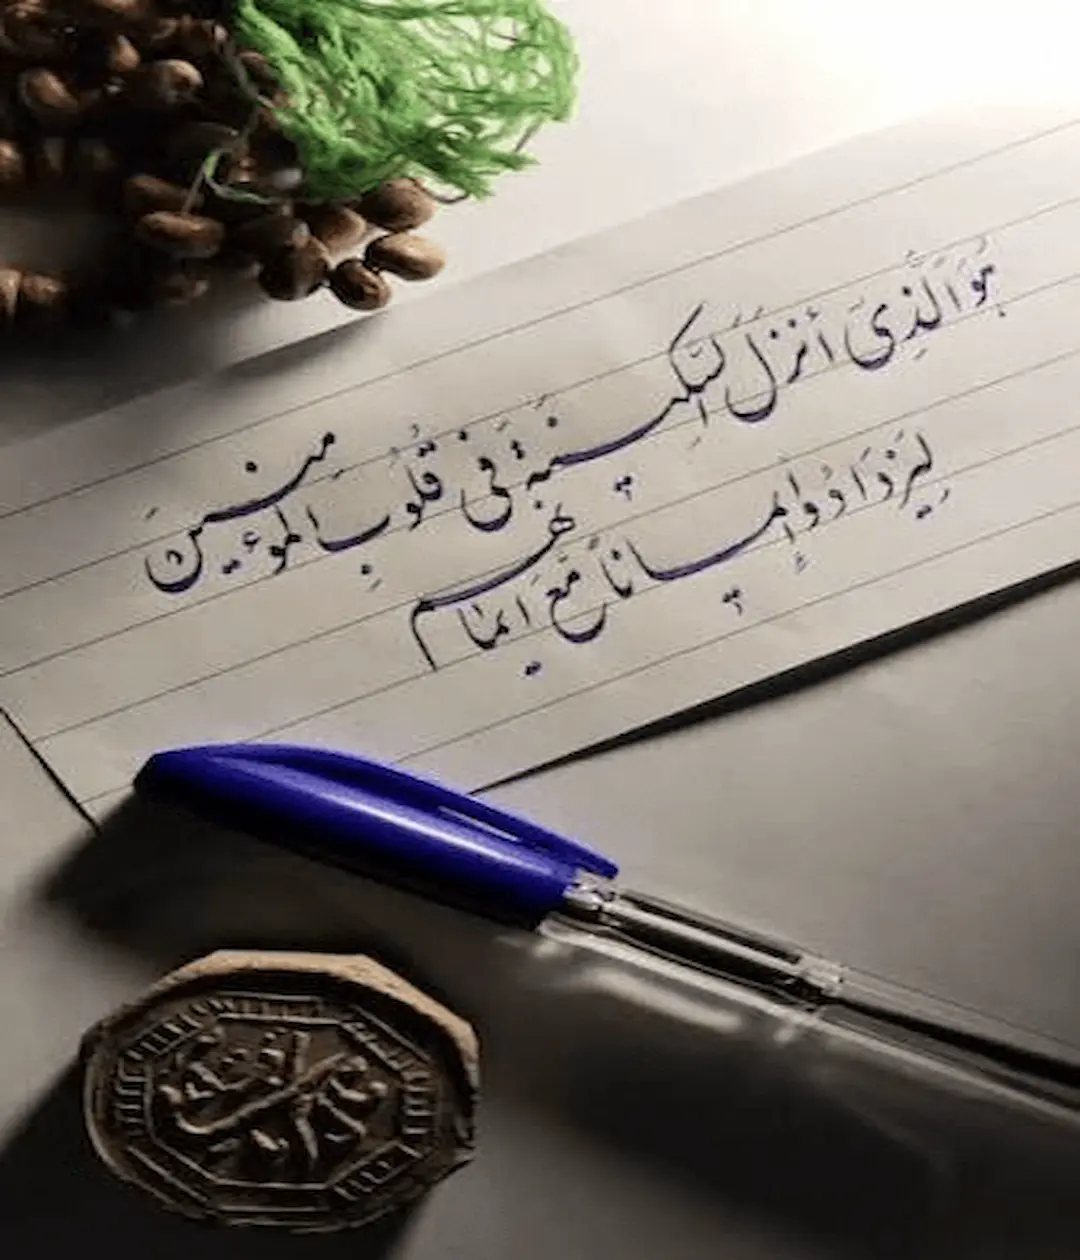 هُوَ الَّذِی أنزَلَ السَّکِینَةَ فِی قُلُوبِ المُؤمِنِینَ
لِیَزْدَادُوا إِیمَانًا مَّعَ ایمَانِهِم